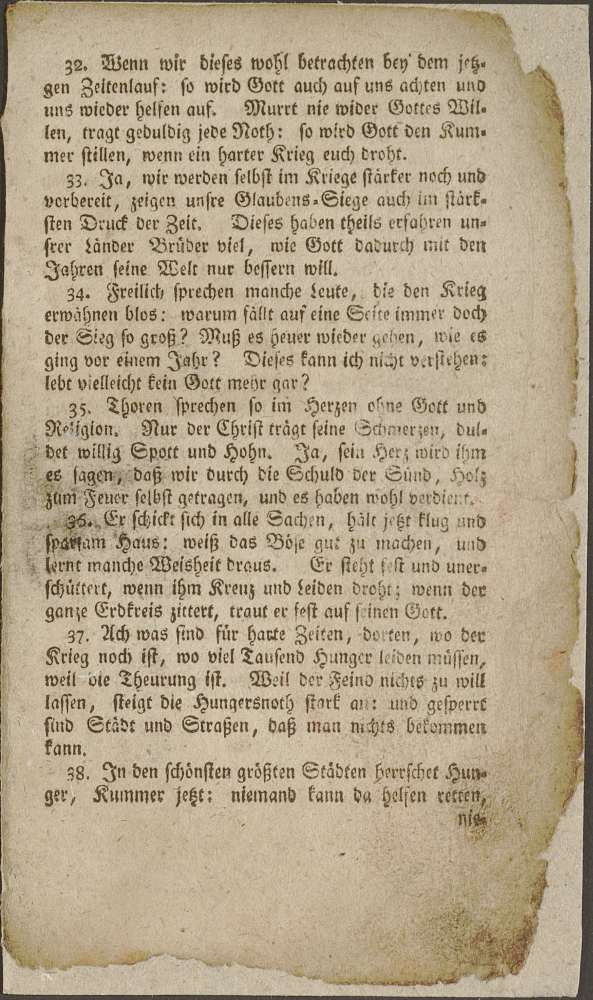 32. Wenn wir dieses wohl betrachten bey dem jetz-
gen Zeitenlauf: so wird Gott auch auf uns achten und
uns wieder helfen auf. Murrt nie wider Gottes Wil-
len, tragt geduldig jede Noth: so wird Gott den Kum-
mer stillen, wenn ein harter Krieg euch droht.
33. Ja, wir werden selbst im Kriege stärker noch und
vorbereit, zeigen unsre Glaubens-Siege auch im stärk-
sten Druck der Zeit. Dieses haben theils erfahren un-
srer Länder Brüder viel, wie Gott dadurch mit den
Jahren seine Welt nur bessern will.
34. Freilich sprechen manche Leute, die den Krieg
erwähnen blos: warum fällt auf eine Seite immer doch
der Sieg so groß? Muß es heuer wieder gehen, wie es
ging vor einem Jahr? Dieses kann ich nicht verstehen:
lebt vielleicht kein Gott mehr gar?
35. Thoren sprechen so im Herzen ohne Gott und
Religion. Nur der Christ trägt seine Schmerzen, dul-
det willig Spott und Hohn. Ja, sein Herz wird ihm
es sagen, daß wir durch die Schuld der Sünd, Holz
zum Feuer selbst getragen, und es haben wohl verdient.
36. Er schickt sich in alle Sachen, hält jetzt klug und
sparsam Haus: weiß das Böse gut zu machen, und
lernt manche Weisheit draus. Er steht fest und uner-
schüttert, wenn ihm Kreuz und Leiden droht; wenn der
ganze Erdkreis zittert, traut er fest auf seinen Gott.
37. Ach was sind für harte Zeiten, dorten, wo der
Krieg noch ist, wo viel Tausend Hunger leiden müssen,
weil die Theurung ist. Weil der Feind nichts zu will
lassen, steigt die Hungersnoth stark an: und gesperrt
sind Städt und Straßen, daß man nichts bekommen
kann.
38. In den schönsten größten Städten herrschet Hun-
ger, Kummer jetzt: niemand kann da helfen retten,
nie-